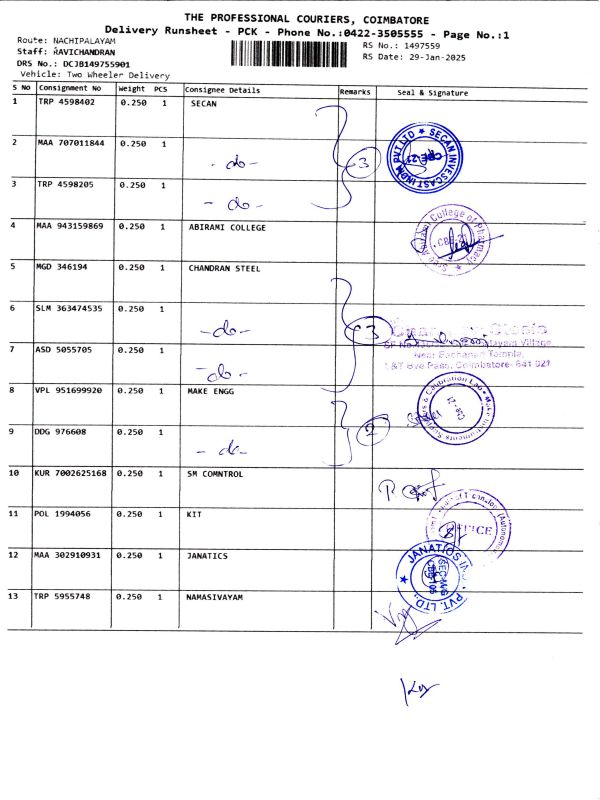 THE PROFESSIONAL COURIERS, COIMBATORE
Delivery Runsheet - PCK - Phone No.:0422-3505555 - Page No.:1
Route: NACHIPALAYAM
RS No.: 1497559
Staff: RAVICHANDRAN
RS Date: 29-Jan-2025
DRS No.: DCJB149755901
Vehicle: Two Wheeler Delivery
S No Consignment No Weight PCS Consignee Details Remarks Seal & Signature
1 TRP 4598402 0.250 1 SECAN
2 MAA 707011844 0.250 1 -do- 3
SECAN INVESCAST INDIA PVT LTD
3 TRP 4598205 0.250 1 -do-
4 MAA 943159869 0.250 1 ABIRAMI COLLEGE
Abirami College of Pharmacy
5 MGD 346194 0.250 1 CHANDRAN STEEL
6 SLM 363474535 0.250 1 -do- 3
7 ASD 5055705 0.250 1 -do-
Village,
Temple,
L&T Bye Pass, Coimbatore-641 021
8 VPL 951699920 0.250 1 MAKE ENGG
& Calibration Lab
9 DDG 976608 0.250 1 -do- 2
10 KUR 7002625168 0.250 1 SM COMNTROL
11 POL 1994056 0.250 1 KIT
12 MAA 302910931 0.250 1 JANATICS
PVT. LTD.
13 TRP 5955748 0.250 1 NAMASIVAYAM